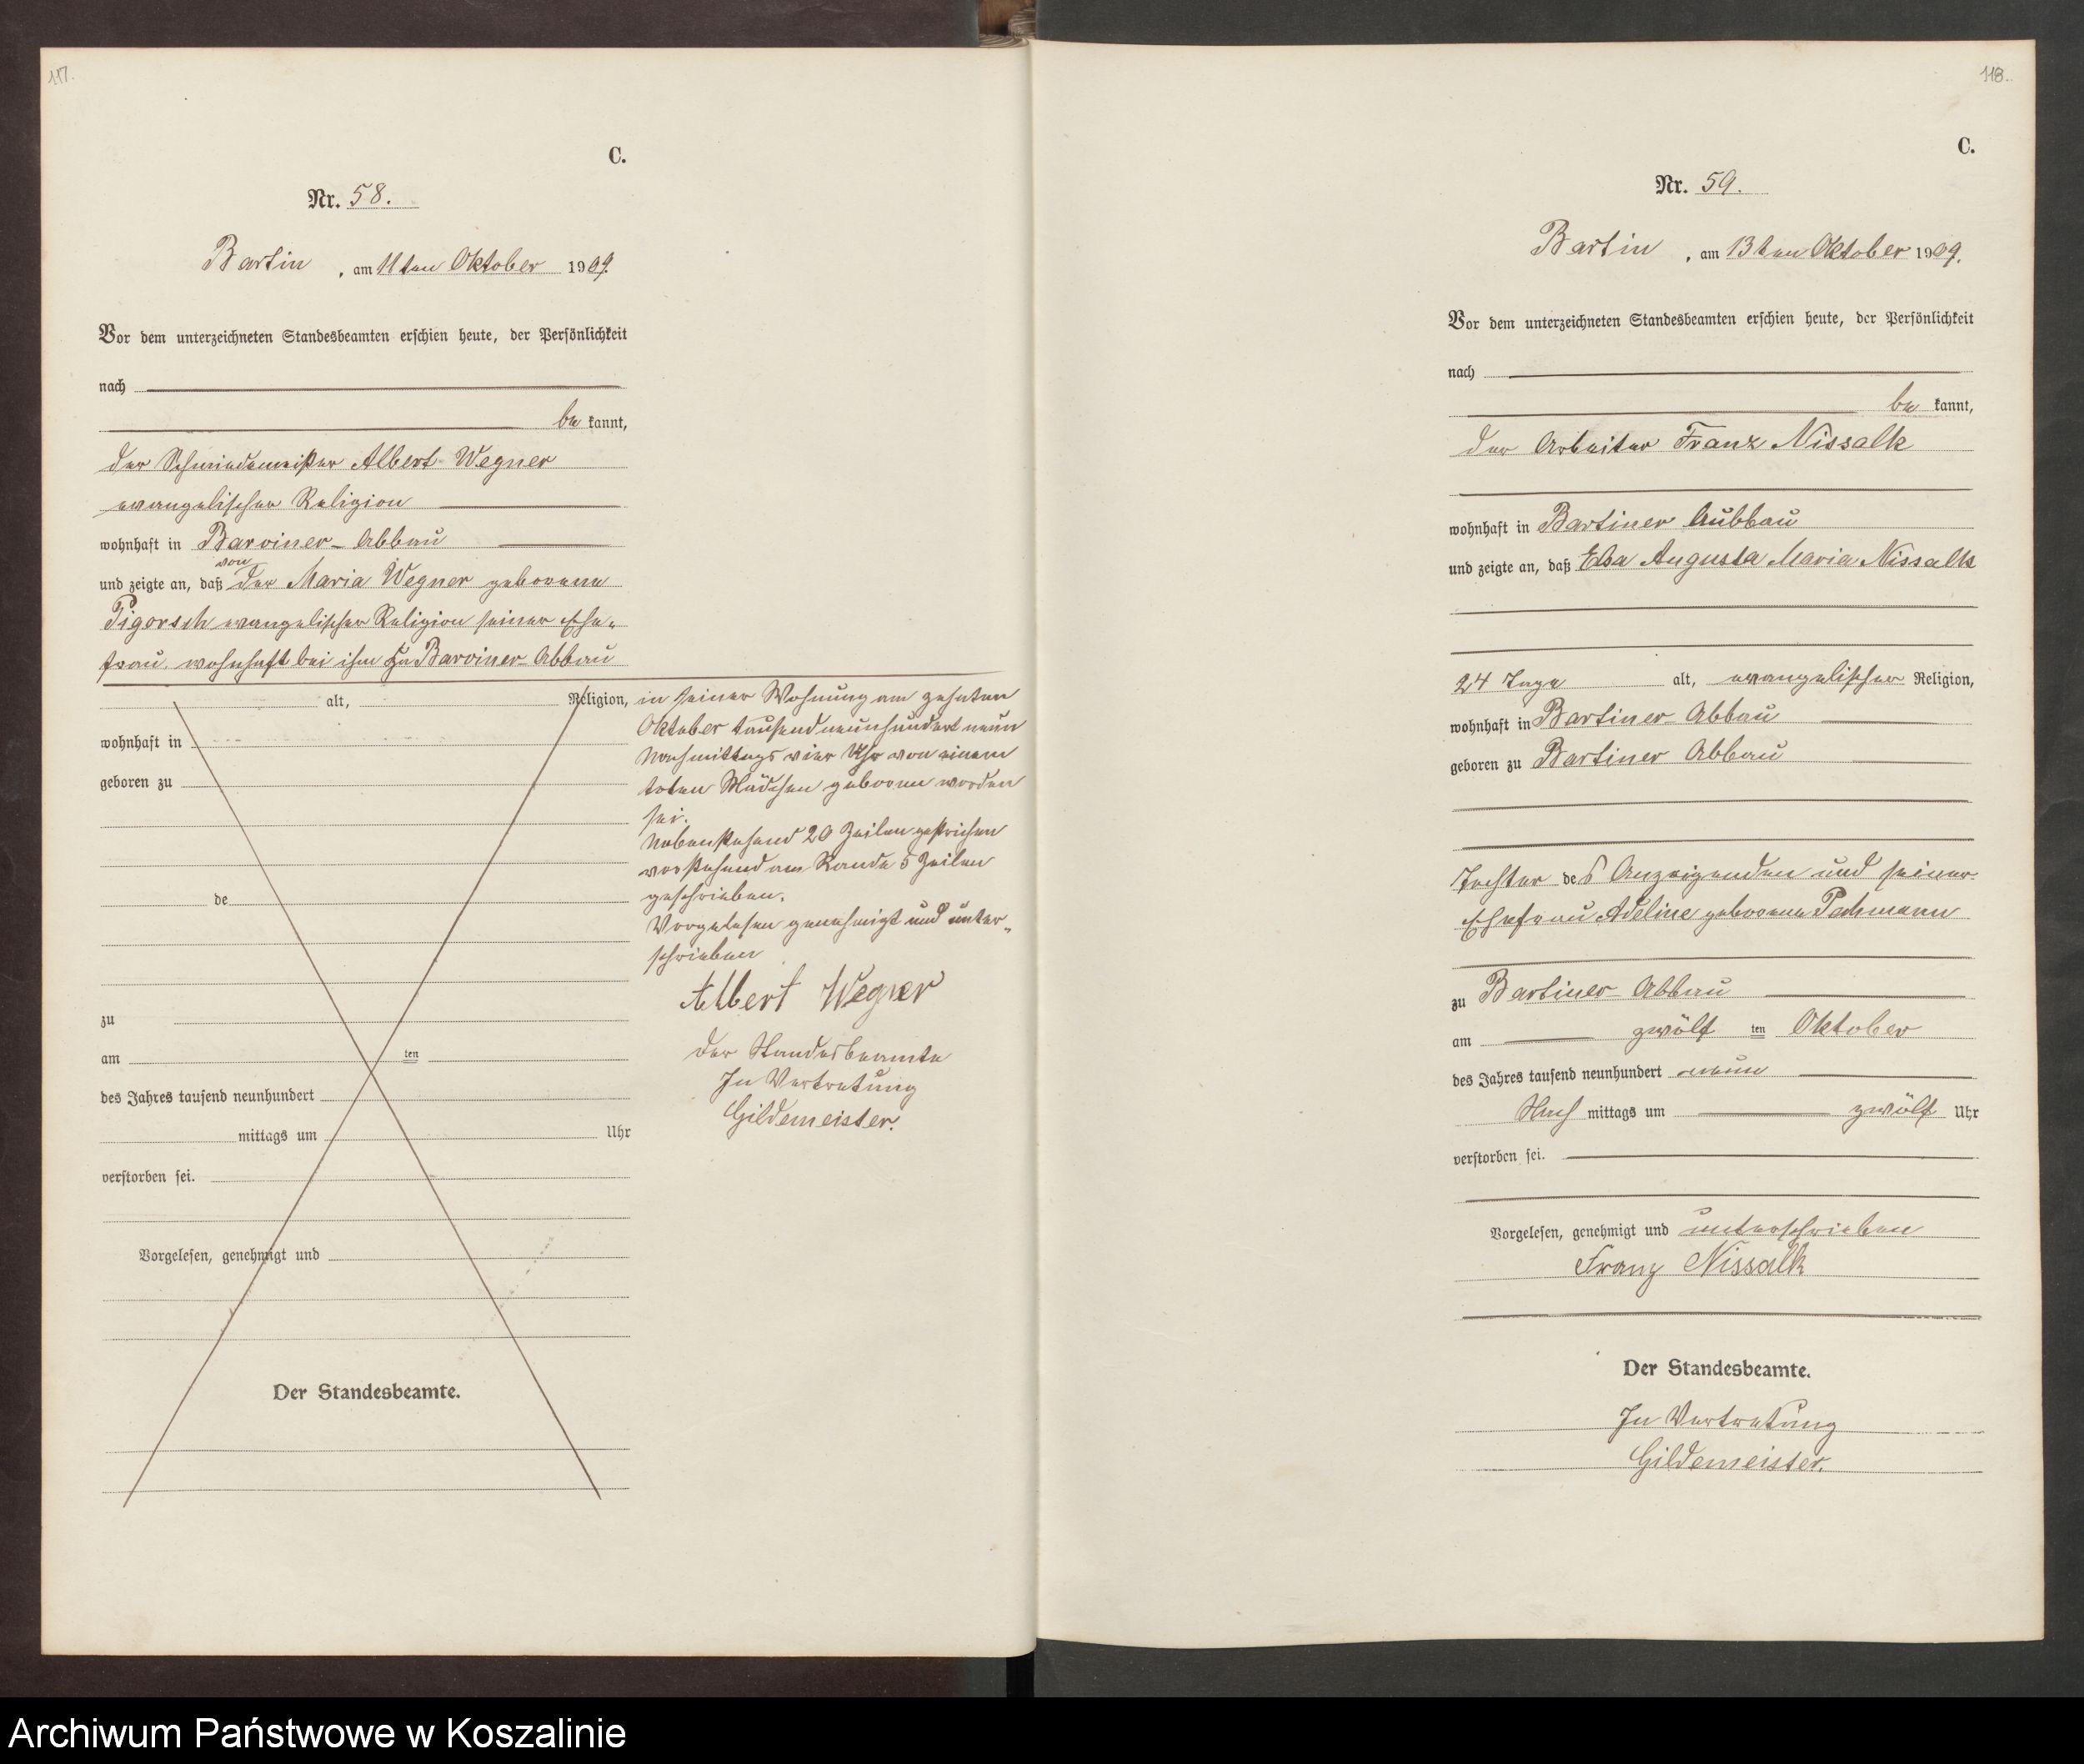 117.
C.
Nr. 58.
Bartin, am 11ten Oktober 1909.
Vor dem unterzeichneten Standesbeamten erschien heute, der Persönlichkeit
nach
be kannt,
der Schmiedemeister Albert Wegner
evangelischer Religion
wohnhaft in Barviner-Abbau
von
und zeigte an, daß der Maria Wegner geborene
Pigorsch evangelischer Religion seiner Ehe-
frau, wohnhaft bei ihm zu Barviner-Abbau
alt, Religion,
wohnhaft in
geboren zu
de
zu
am ten
des Jahres tausend neunhundert
mittags um Uhr
verstorben sei.
Vorgelesen, genehmigt und
Der Standesbeamte.
in seiner Wohnung am zehnten
Oktober tausend neunhundert neun
Nachmittags vier Uhr von einem
toten Mädchen geboren worden
sei.
Nebenstehend 20 Zeilen gestrichen
vorstehend am Rande 5 Zeilen
geschrieben.
Vorgelesen genehmigt und unter-
schrieben
Albert Wegner
Der Standesbeamte
In Vertretung
Gildemeister.
118.
C.
Nr. 59.
Bartin, am 13ten Oktober 1909.
Vor dem unterzeichneten Standesbeamten erschien heute, der Persönlichkeit
nach
be kannt,
der Arbeiter Franz Nissalk
wohnhaft in Bartiner Aubbau
und zeigte an, daß Elsa Augusta Maria Nissalk
24 Tage alt, evangelischer Religion,
wohnhaft in Bartiner-Abbau
geboren zu Bartiner Abbau
Tochter des Anzeigenden und seiner
Ehefrau Adeline geborene Pachmann
zu Bartiner-Abbau
am zwölf ten Oktober
des Jahres tausend neunhundert neun
Nach mittags um zwölf Uhr
verstorben sei.
Vorgelesen, genehmigt und unterschrieben
Franz Nissalk
Der Standesbeamte.
In Vertretung
Gildemeister.
Archiwum Państwowe w Koszalinie